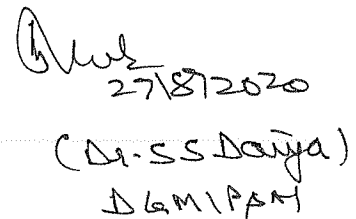 27/8/2020
(Dr. SS Daiya)
DGM/P&M